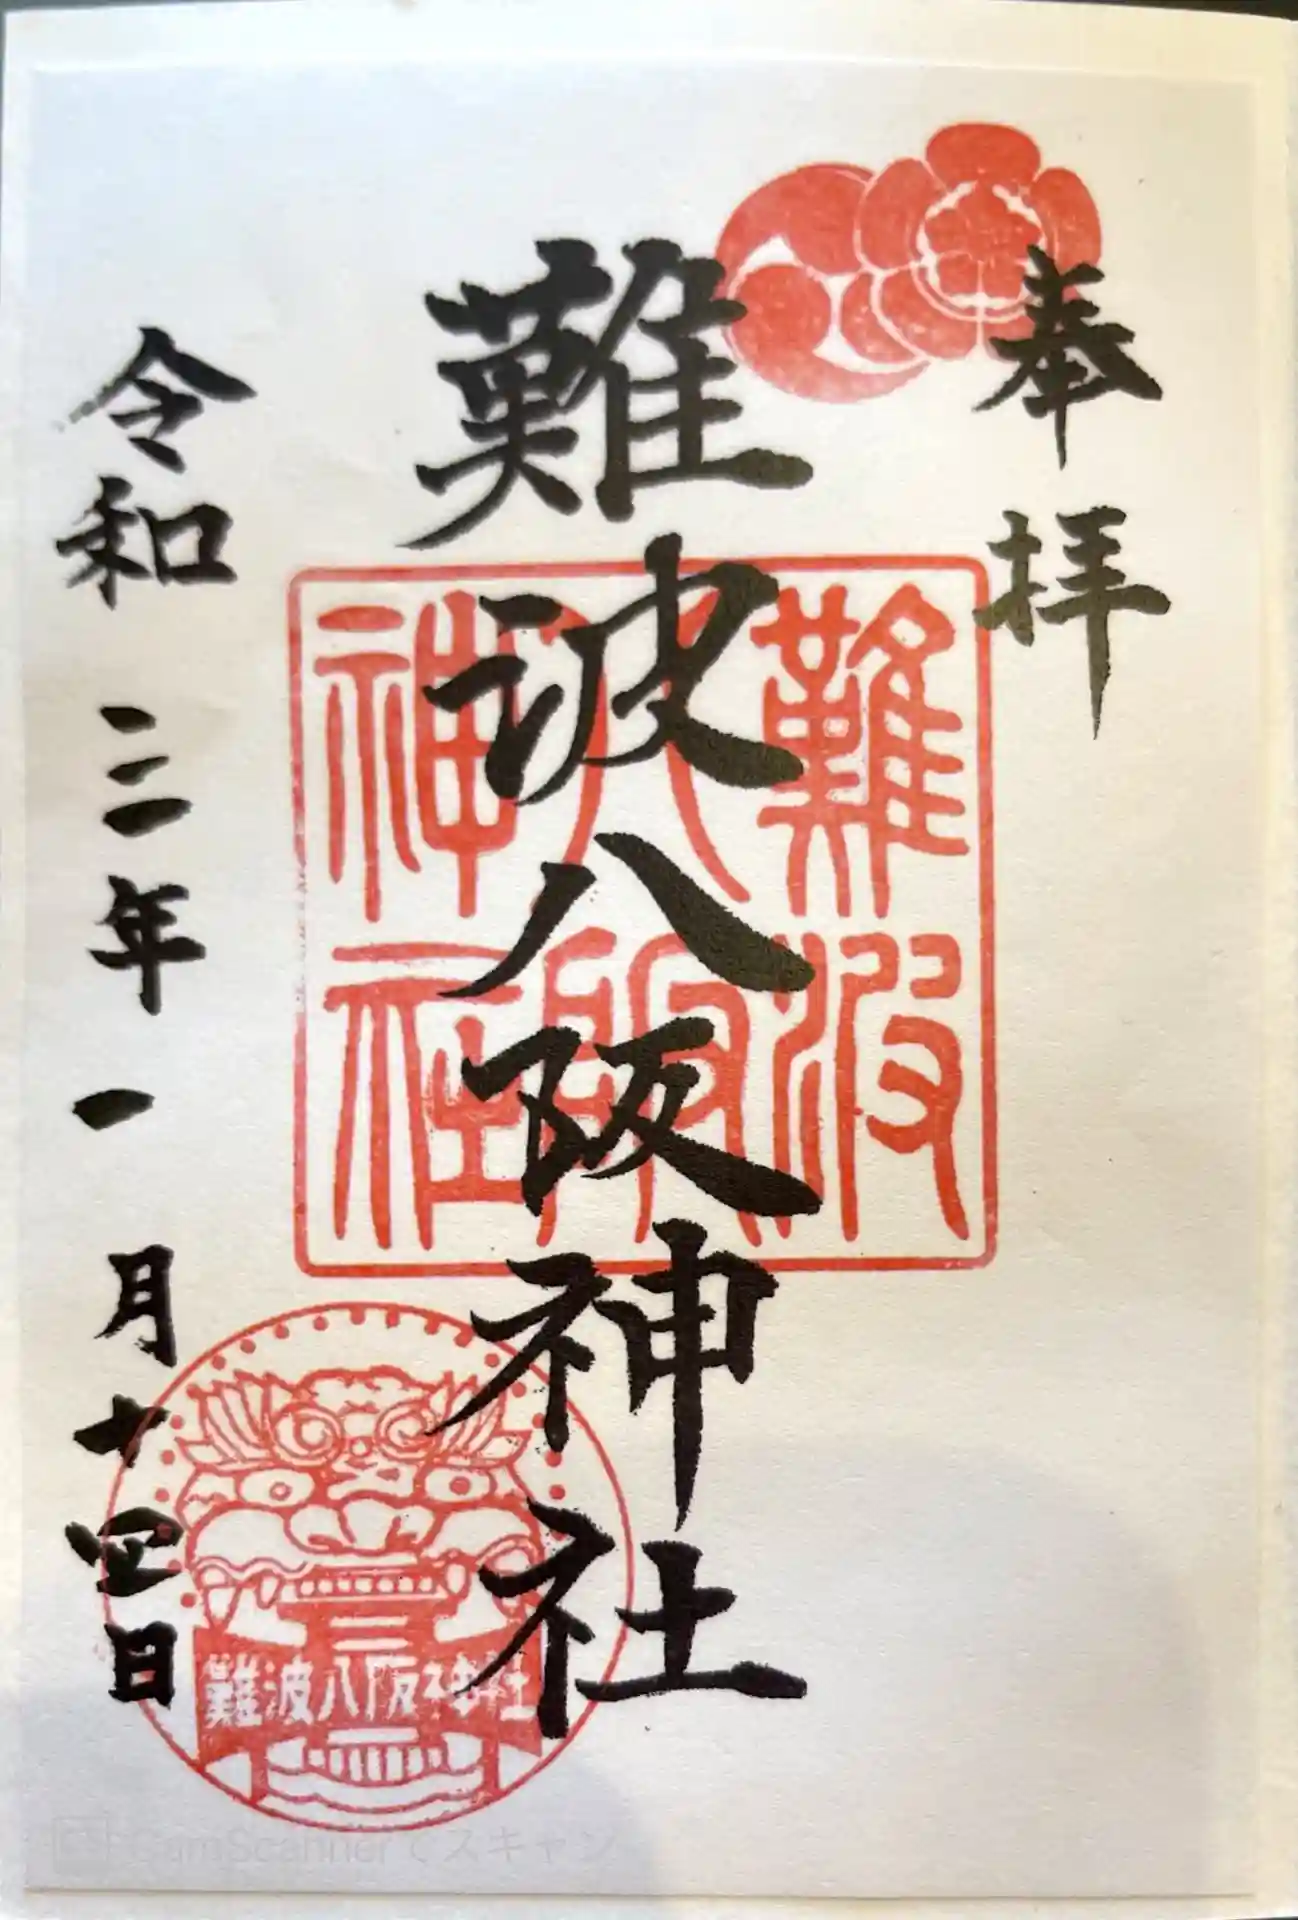 奉拝
難波八阪神社
令和三年一月十四日
難波
八阪
神社
難波八阪神社
CamScannerでスキャン